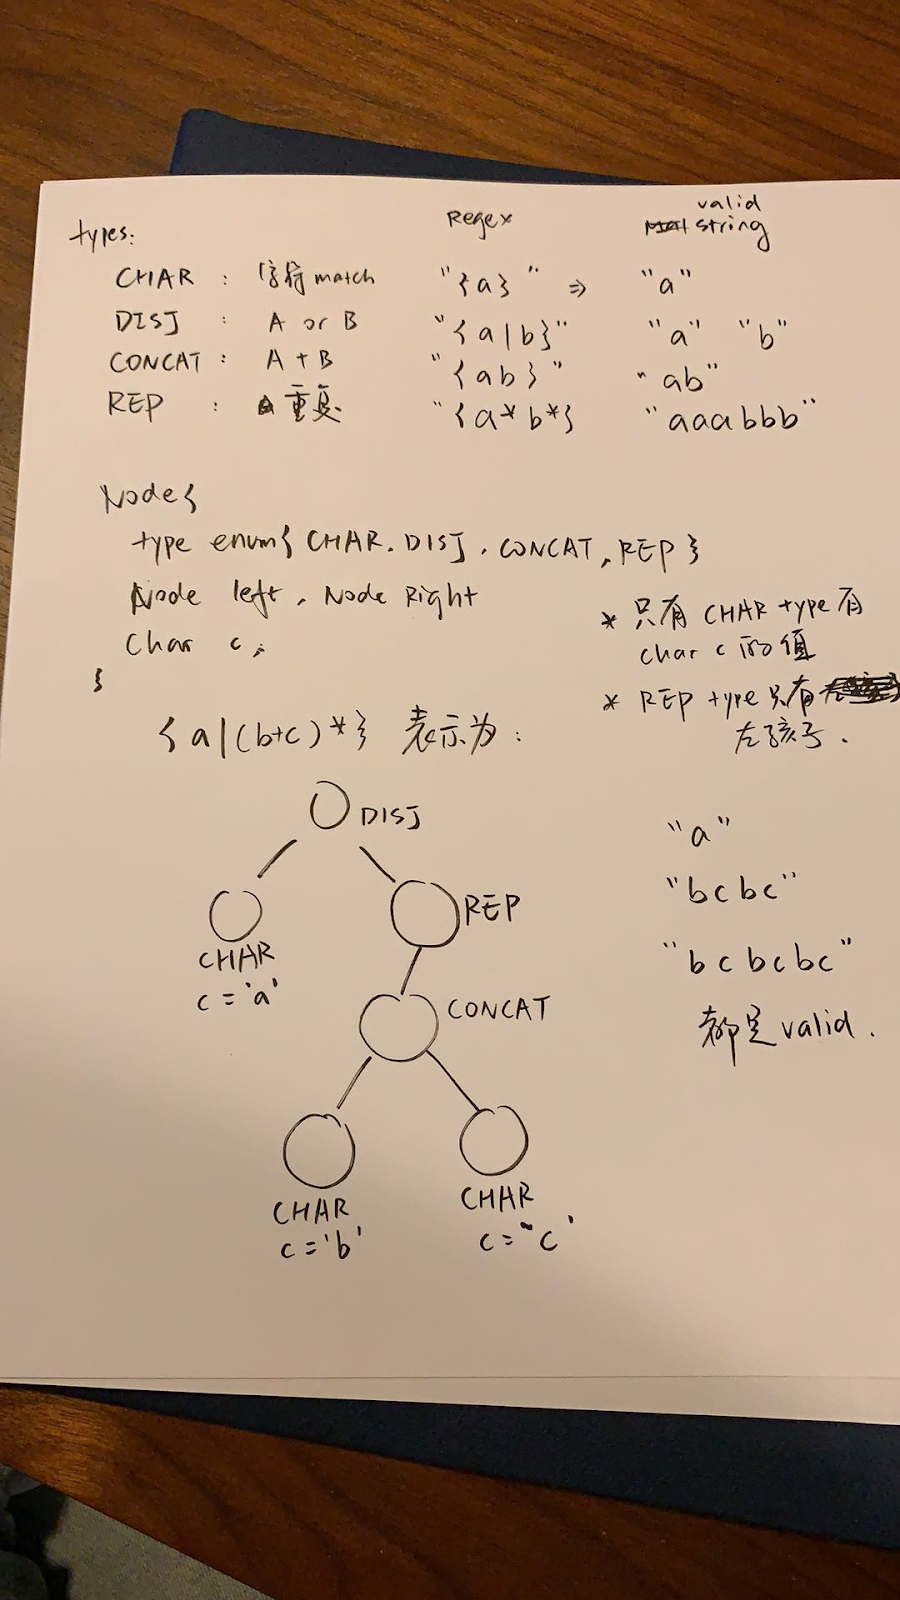 types:
Regex
valid
string
CHAR : 字符match "{a}" ⇒ "a"
DISJ : A or B "{a|b}" "a" "b"
CONCAT : A + B "{ab}" "ab"
REP : 重复 "{a*b*} "aaabbb"
Node{
type enum{ CHAR. DISJ, CONCAT, REP }
Node left, Node Right
Char c;
}
* 只有 CHAR type 有
char c 的值
* REP type 只有
左孩子.
{a|(b+c)*} 表示为:
DISJ
REP
CHAR
c = 'a'
CONCAT
CHAR
c = 'b'
CHAR
c = 'c'
"a"
"bcbc"
"bcbcbc"
都是valid.